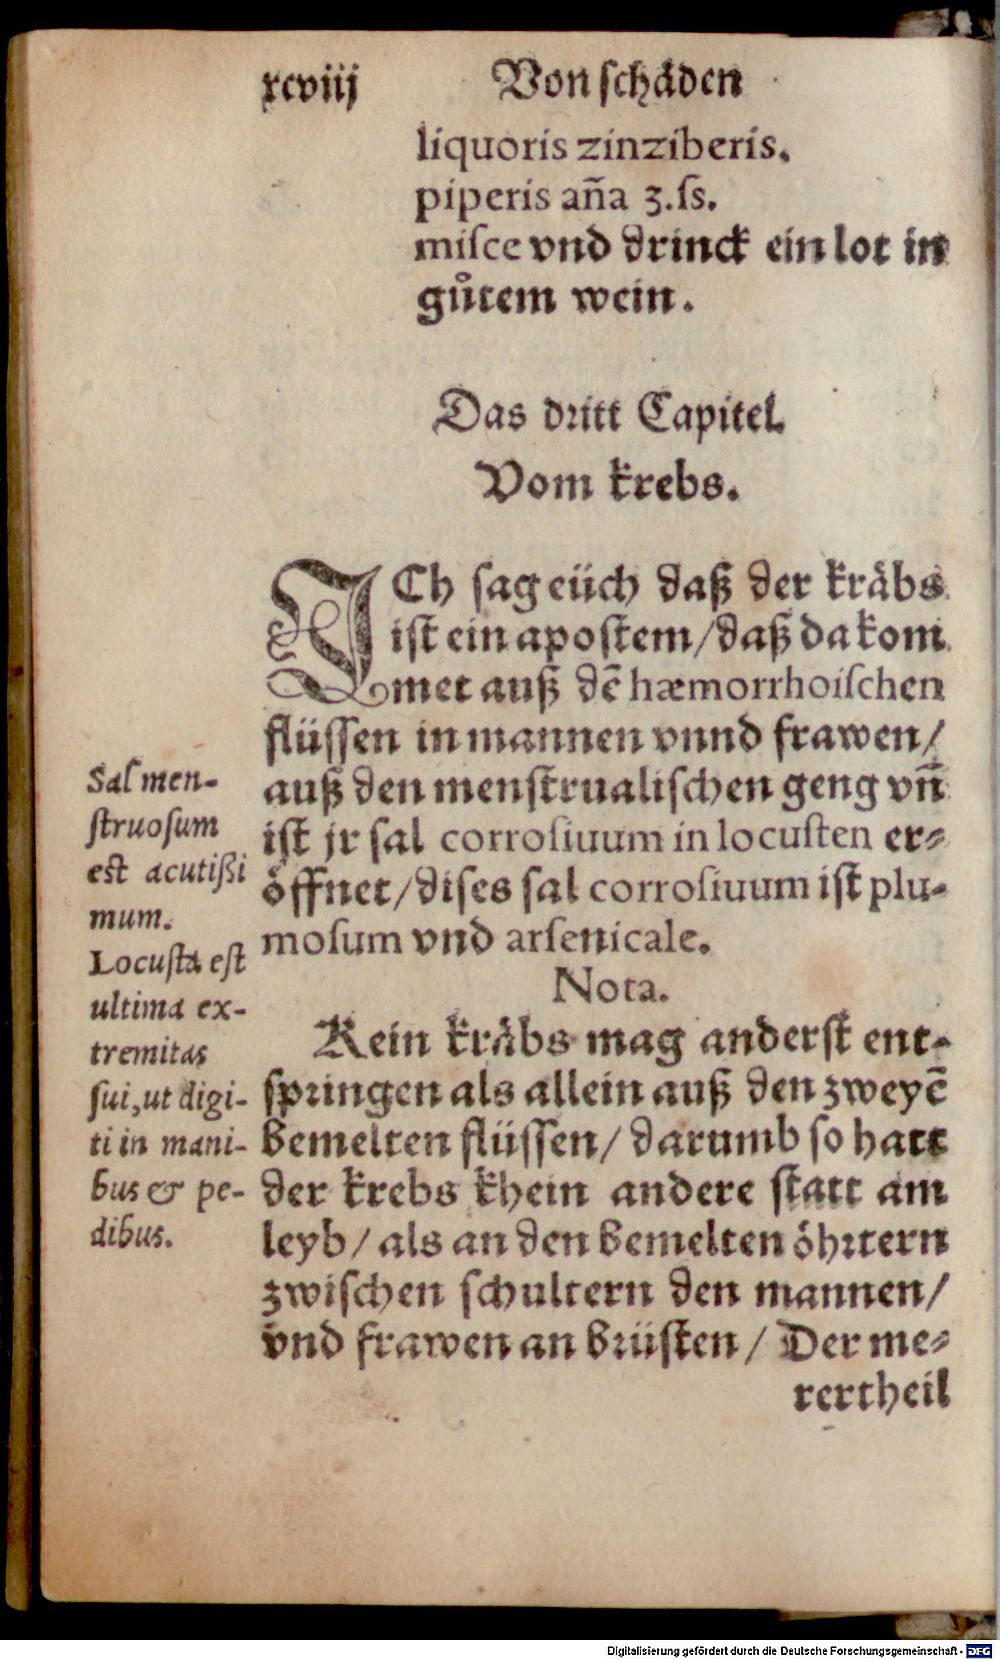 xcviij
Von schäden
liquoris zinziberis.
piperis aña ʒ.ſs.
miſce vnd drinck ein lot in
gůtem wein.
Das dritt Capitel.
Vom krebs.
ICh ſag eüch daß der kräbs
iſt ein apoſtem/daß da kom
met auß dē hæmorrhoiſchen
flüſſen in mannen vnnd frawen/
auß den menſtrualiſchen geng vñ
iſt jr ſal corroſiuum in locuſten er⸗
öffnet/diſes ſal corroſiuum iſt plu-
moſum vnd arſenicale.
Nota.
Kein kräbs mag anderſt ent-
ſpringen als allein auß den zweyē
bemelten flüſſen/ darumb ſo hatt
der krebs khein andere ſtatt am
leyb/ als an den bemelten öhrtern
zwiſchen ſchultern den mannen/
vnd frawen an brüſten/ Der me⸗
rertheil
Sal men-
ſtruoſum
eſt acutißi
mum.
Locuſta eſt
ultima ex-
tremitas
ſui,ut digi-
ti in mani-
bus & pe-
dibus.
Digitalisierung gefördert durch die Deutsche Forschungsgemeinschaft - DFG